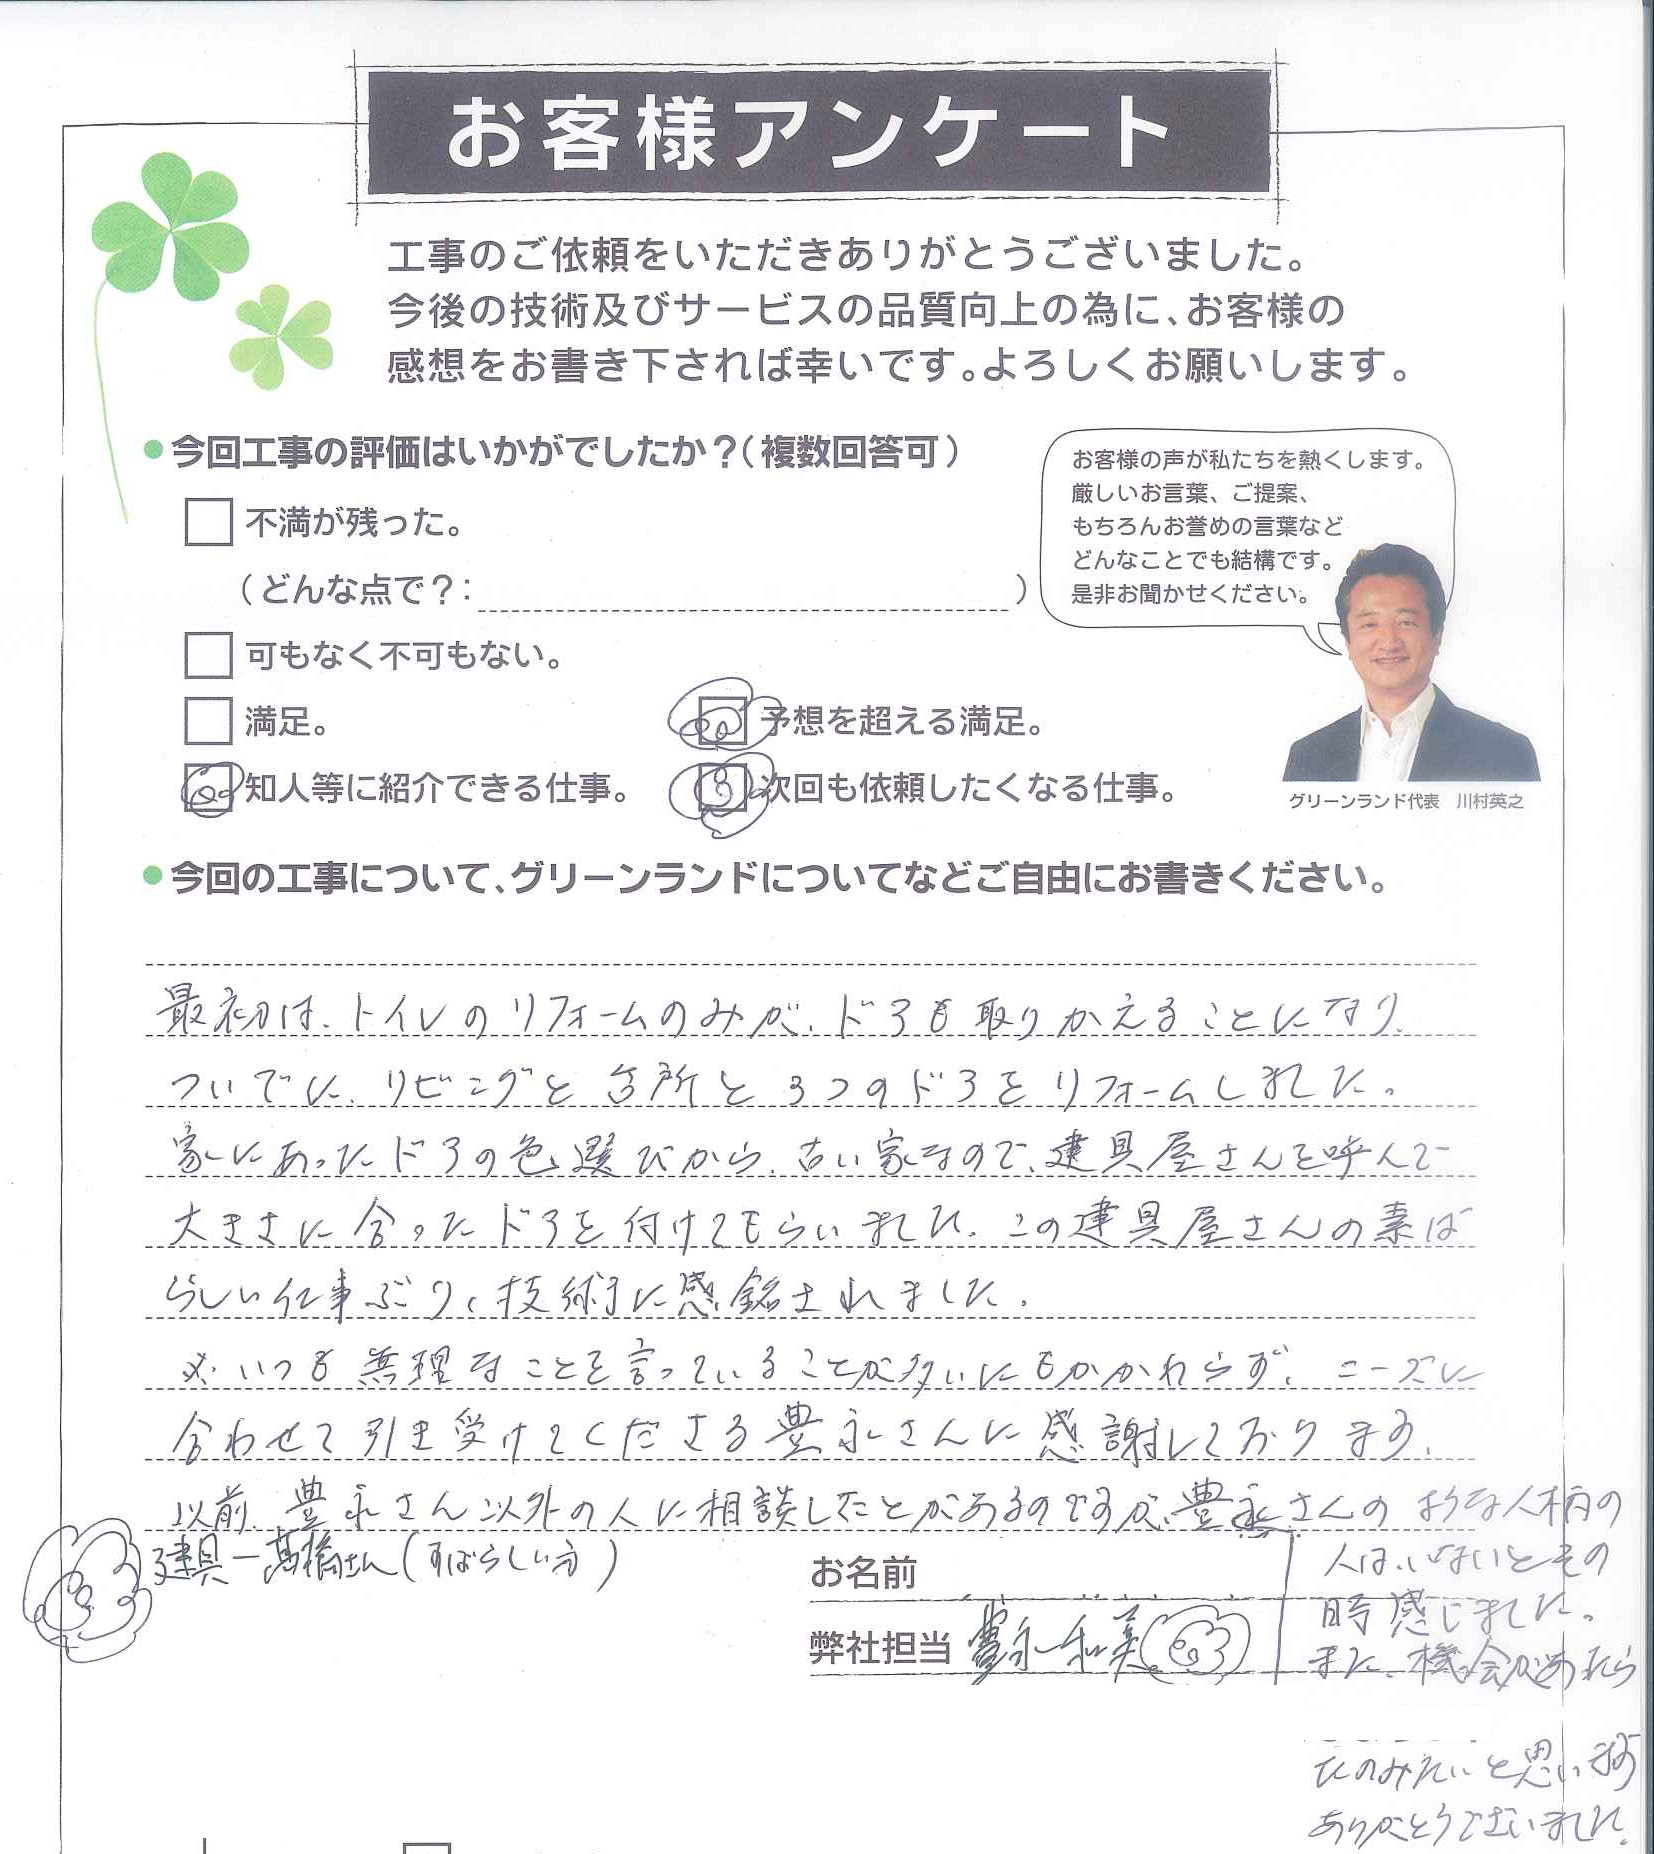 お客様アンケート
工事のご依頼をいただきありがとうございました。
今後の技術及びサービスの品質向上の為に、お客様の
感想をお書き下されば幸いです。よろしくお願いします。
●今回工事の評価はいかがでしたか？（複数回答可）
お客様の声が私たちを熱くします。
厳しいお言葉、ご提案、
もちろんお誉めの言葉など
どんなことでも結構です。
是非お聞かせください。
不満が残った。
（どんな点で？： ）
可もなく不可もない。
満足。 予想を超える満足。
知人等に紹介できる仕事。 次回も依頼したくなる仕事。
グリーンランド代表 川村英之
●今回の工事について、グリーンランドについてなどご自由にお書きください。
最初は、トイレのリフォームのみが、ドアも取りかえることになり、
ついでに、リビングと台所と3つのドアをリフォームしました。
家にあったドアの色選びから、古い家なので、建具屋さんを呼んで
大きさに合ったドアを付けてもらいました。この建具屋さんの素ば
らしい仕事ぶり、技術に感銘されました。
※いつも無理なことを言っていることが多いにもかかわらず、ニーズに
合わせて引き受けてくださる豊永さんに感謝しております。
以前、豊永さん以外の人に相談したことがあるのですが、豊永さんの ような人柄の
人は、いないとその
時感じました。
また、機会があったら
たのみたいと思います
ありがとうございました。
建具―髙橋さん（すばらしい方）
お名前
弊社担当 豊永和美